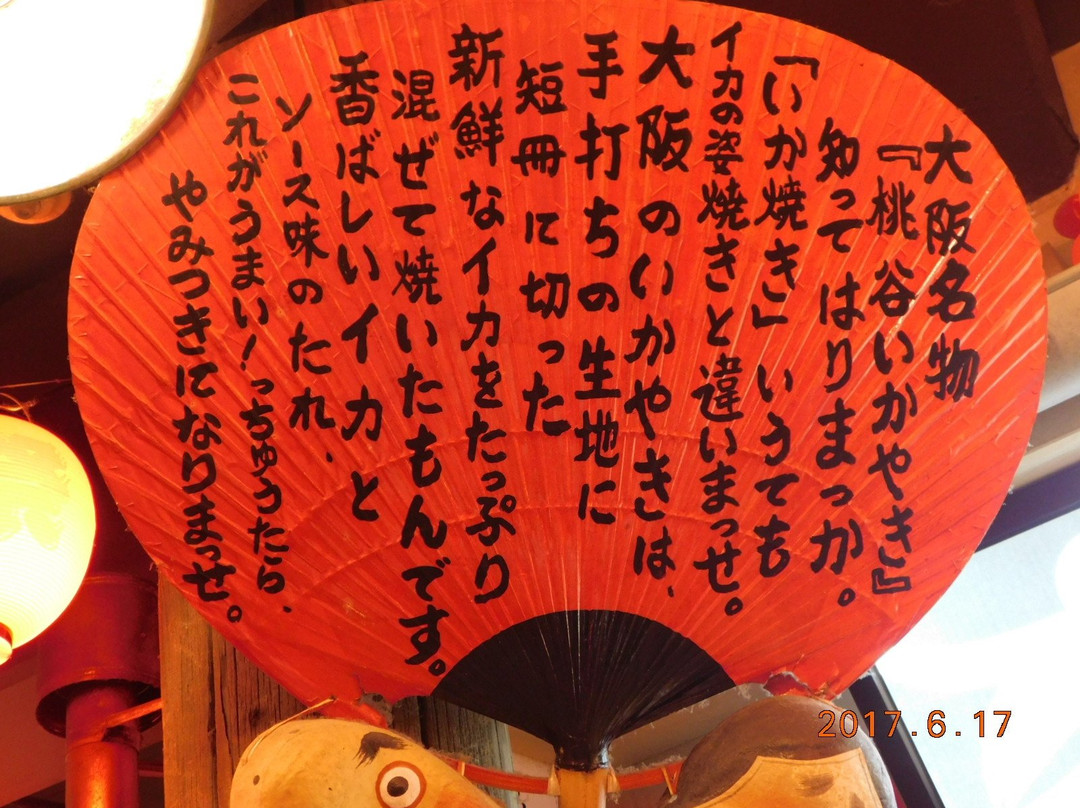 大阪名物
『桃谷いかやき』
知ってはりまっか。
「いか焼き」いうても
イカの姿焼きと違いまっせ。
大阪のいかやきは、
手打ちの生地に
短冊に切った
新鮮なイカをたっぷり
混ぜて焼いたもんです。
香ばしいイカと
ソース味のたれ、
これがうまい！っちゅうたら、
やみつきになりまっせ。
2017.6.17